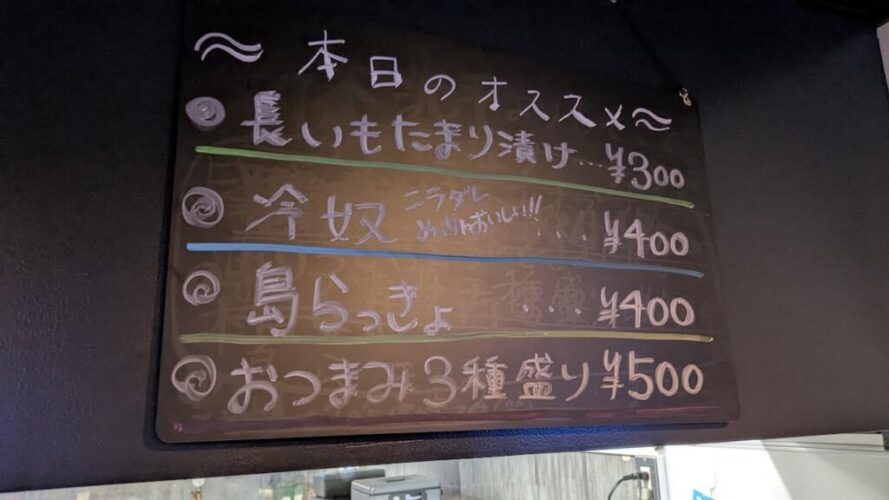 〜本日のオススメ〜
長いもたまり漬け…¥300
冷奴 ニラダレ めっちゃおいしい!! ...¥400
島らっきょ ...¥400
おつまみ3種盛り ¥500